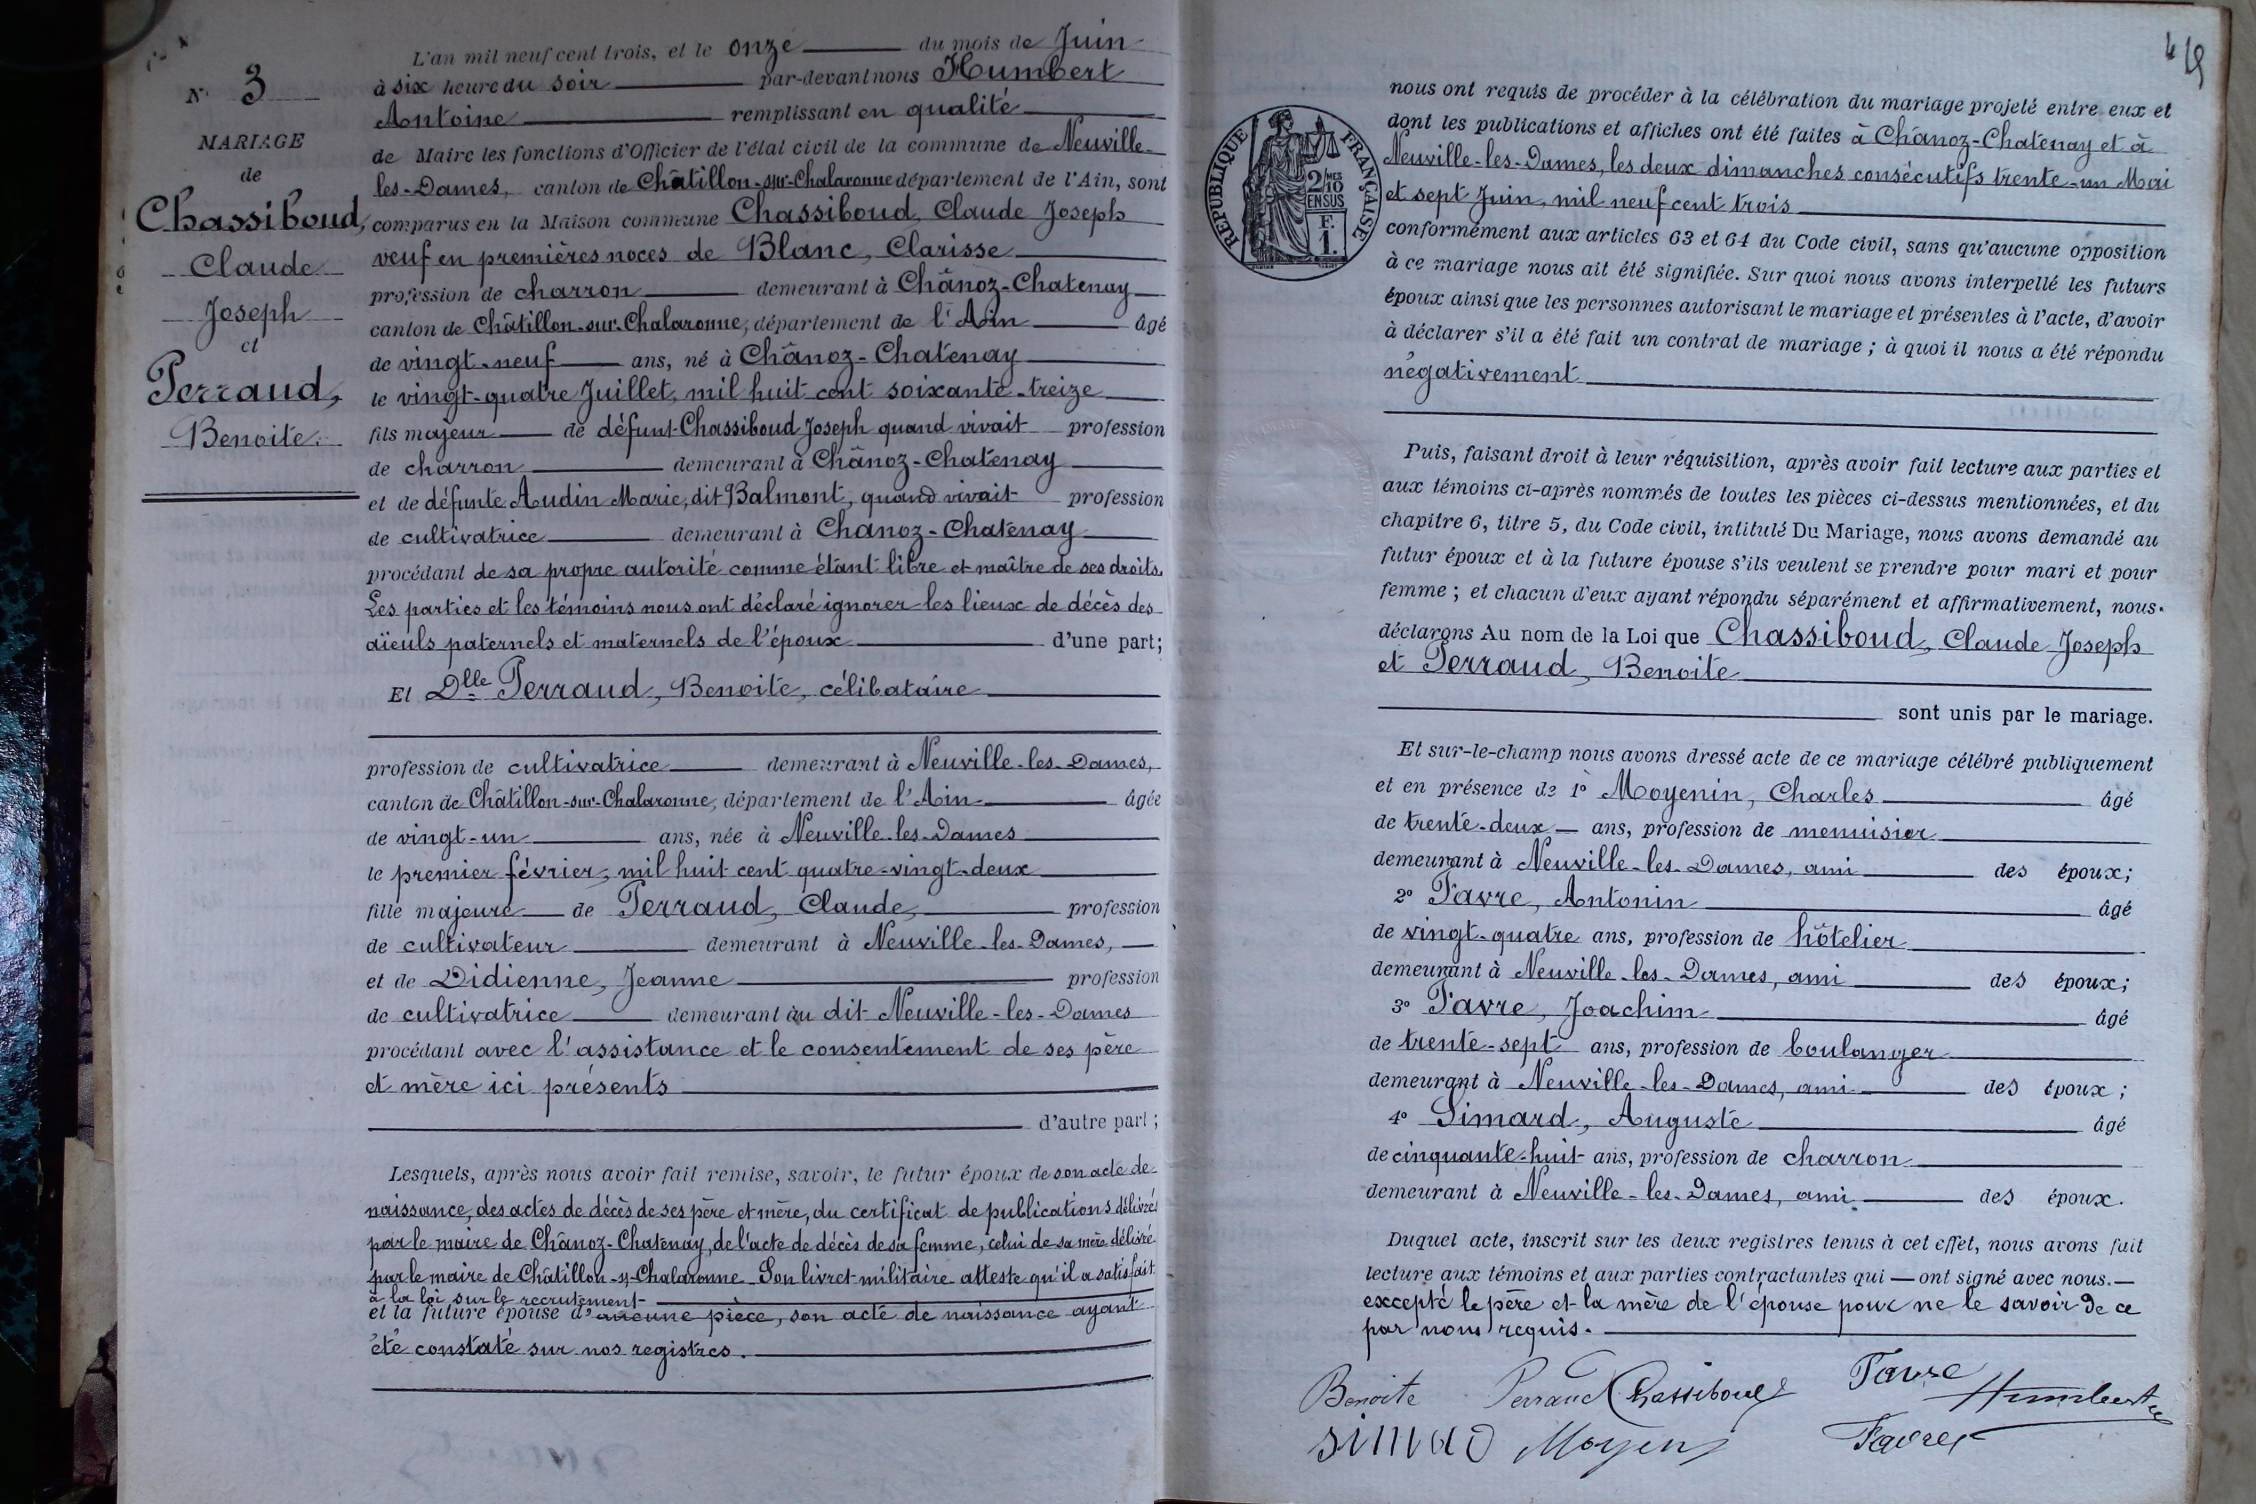 N° 3
MARIAGE
de
Chassiboud,
Claude
Joseph
et
Perraud,
Benoite.
L'an mil neuf cent trois, et le onze du mois de Juin
à six heure du soir par-devant nous Humbert
Antoine remplissant en qualité
de Maire les fonctions d'Officier de l'état civil de la commune de Neuville-
les-Dames, canton de Châtillon-sur-Chalaronne département de l'Ain, sont
comparus en la Maison commune Chassiboud, Claude Joseph
veuf en premières noces de Blanc, Clarisse
profession de charron demeurant à Chânoz-Chatenay
canton de Châtillon-sur-Chalaronne, département de l'Ain âgé
de vingt-neuf ans, né à Chânoz-Chatenay
le vingt-quatre Juillet, mil huit cent soixante-treize
fils majeur de défunt Chassiboud Joseph quand vivait profession
de charron demeurant à Chânoz-Chatenay
et de défunte Audin Marie, dit Balmont, quand vivait profession
de cultivatrice demeurant à Chanoz-Chatenay
procédant de sa propre autorité comme étant libre et maître de ses droits.
Les parties et les témoins nous ont déclaré ignorer les lieux de décès des
aïeuls paternels et maternels de l'époux d'une part;
Et Dlle Perraud, Benoite, célibataire
profession de cultivatrice demeurant à Neuville-les-Dames,
canton de Châtillon-sur-Chalaronne, département de l'Ain âgée
de vingt-un ans, née à Neuville-les-Dames
le premier février, mil huit cent quatre-vingt-deux
fille majeure de Perraud, Claude, profession
de cultivateur demeurant à Neuville-les-Dames,
et de Didienne, Jeanne profession
de cultivatrice demeurant au dit Neuville-les-Dames
procédant avec l'assistance et le consentement de ses père
et mère ici présents
d'autre part;
Lesquels, après nous avoir fait remise, savoir, le futur époux de son acte de
naissance, des actes de décès de ses père et mère, du certificat de publications délivrés
par le maire de Chânoz-Chatenay, de l'acte de décès de sa femme, celui de sa mère délivré
par le maire de Châtillon-s-Chalaronne. Son livret militaire atteste qu'il a satisfait
à la loi sur le recrutement
et la future épouse d'aucune pièce, son acte de naissance ayant
été constaté sur nos registres.
49
RÉPUBLIQUE FRANÇAISE
2/10 MES
EN SUS
F.
1.
nous ont requis de procéder à la célébration du mariage projeté entre eux et
dont les publications et affiches ont été faites à Chânoz-Chatenay et à
Neuville-les-Dames, les deux dimanches consécutifs trente-un Mai
et sept Juin, mil neuf cent trois
conformément aux articles 63 et 64 du Code civil, sans qu'aucune opposition
à ce mariage nous ait été signifiée. Sur quoi nous avons interpellé les futurs
époux ainsi que les personnes autorisant le mariage et présentes à l'acte, d'avoir
à déclarer s'il a été fait un contrat de mariage; à quoi il nous a été répondu
négativement
Puis, faisant droit à leur réquisition, après avoir fait lecture aux parties et
aux témoins ci-après nommés de toutes les pièces ci-dessus mentionnées, et du
chapitre 6, titre 5, du Code civil, intitulé Du Mariage, nous avons demandé au
futur époux et à la future épouse s'ils veulent se prendre pour mari et pour
femme; et chacun d'eux ayant répondu séparément et affirmativement, nous
déclarons Au nom de la Loi que Chassiboud, Claude Joseph
et Perraud, Benoite
sont unis par le mariage.
Et sur-le-champ nous avons dressé acte de ce mariage célébré publiquement
et en présence de 1° Moyenin, Charles âgé
de trente-deux ans, profession de menuisier
demeurant à Neuville-les-Dames, ami des époux;
2° Favre, Antonin âgé
de vingt-quatre ans, profession de hôtelier
demeurant à Neuville-les-Dames, ami des époux;
3° Favre, Joachim âgé
de trente-sept ans, profession de boulanger
demeurant à Neuville-les-Dames, ami des époux;
4° Simard, Auguste âgé
de cinquante-huit ans, profession de charron
demeurant à Neuville-les-Dames, ami des époux.
Duquel acte, inscrit sur les deux registres tenus à cet effet, nous avons fait
lecture aux témoins et aux parties contractantes qui ont signé avec nous.
excepté le père et la mère de l'épouse pour ne le savoir de ce
par nous requis.
Benoite Perraud Chassiboud Favre Humbert
Moyenin Favre